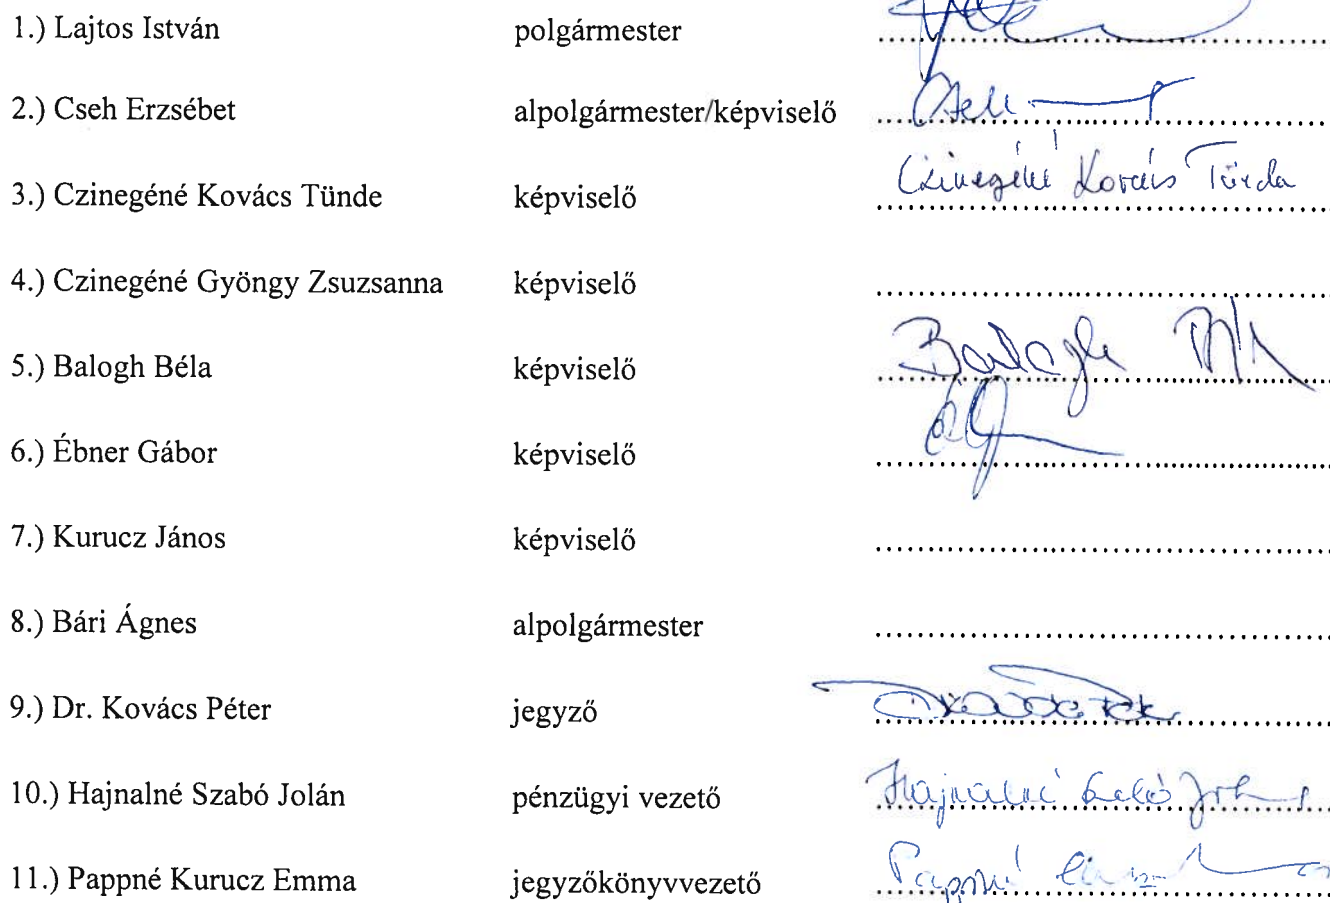 1.) Lajtos István polgármester ........................................
2.) Cseh Erzsébet alpolgármester/képviselő Cseh
3.) Czinegéné Kovács Tünde képviselő Czinegéné Kovács Tünde
4.) Czinegéné Gyöngy Zsuzsanna képviselő ........................................
5.) Balogh Béla képviselő Balogh
6.) Ébner Gábor képviselő ........................................
7.) Kurucz János képviselő ........................................
8.) Bári Ágnes alpolgármester ........................................
9.) Dr. Kovács Péter jegyző ........................................
10.) Hajnalné Szabó Jolán pénzügyi vezető Hajnalné Szabó
11.) Pappné Kurucz Emma jegyzőkönyvvezető Pappné